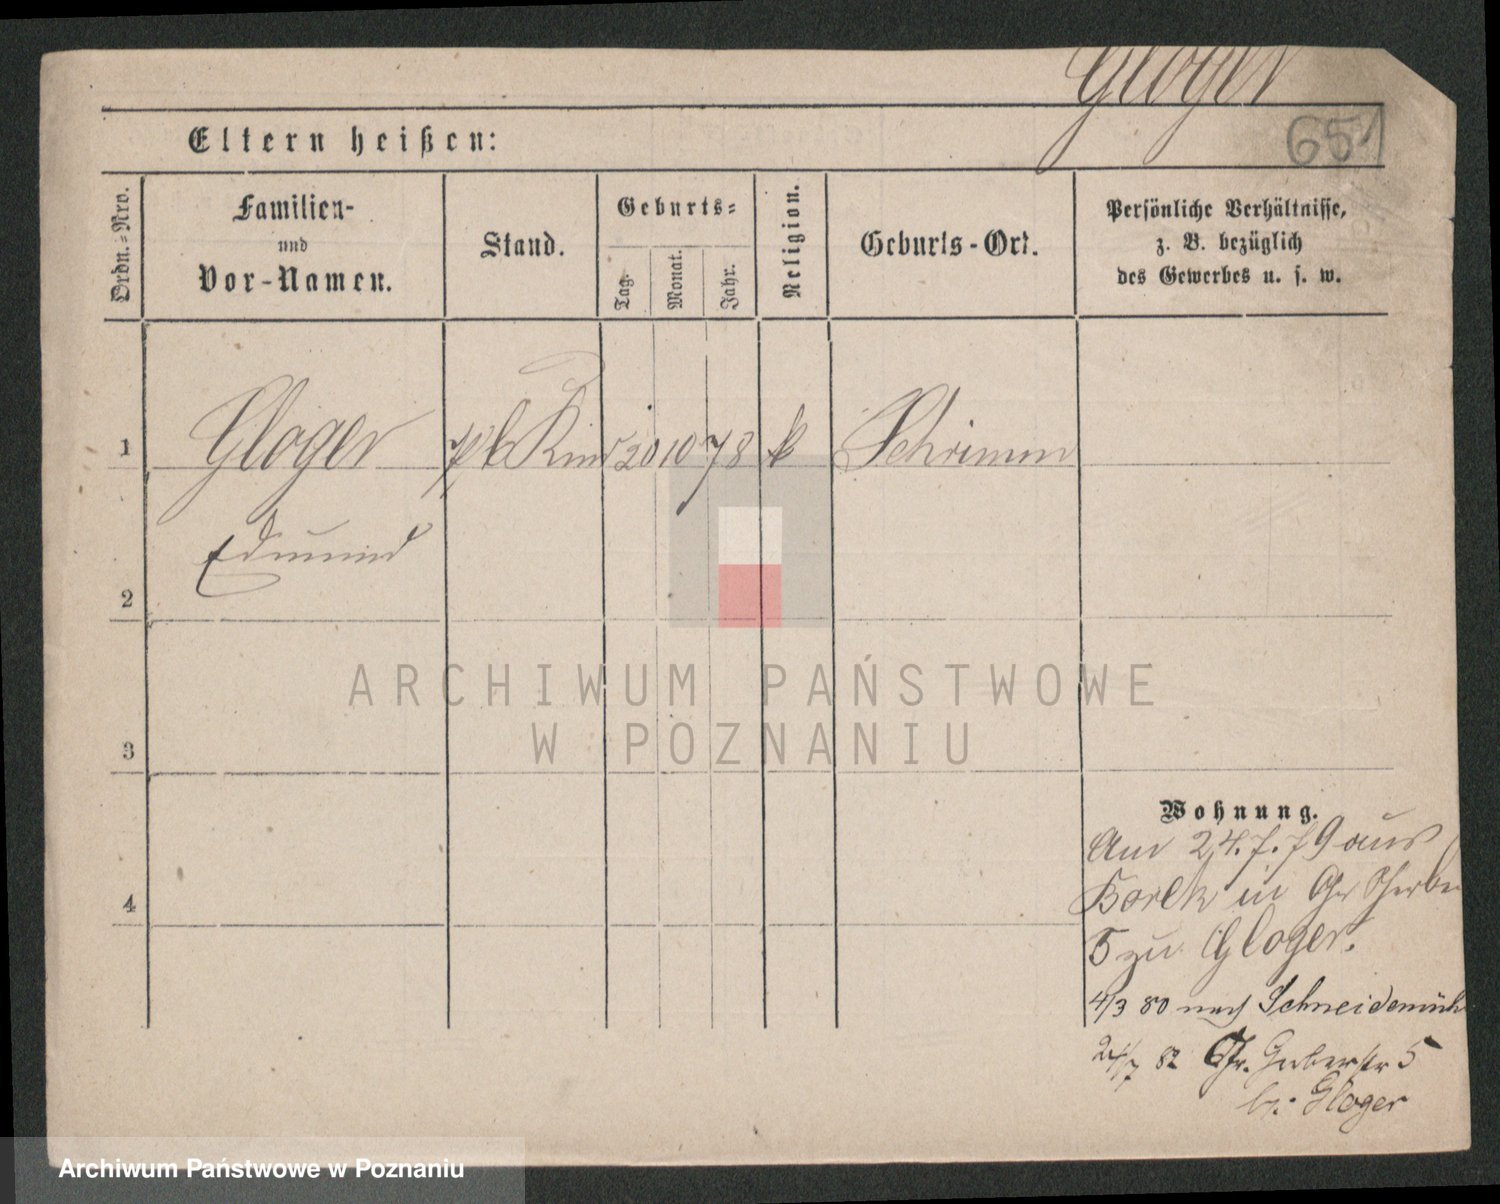 Gloger
651
Eltern heißen:
Ordn.-Nro.
Familien-
und
Vor-Namen.
Stand.
Geburts-
Tag.
Monat.
Jahr.
Religion.
Geburts-Ort.
Persönliche Verhältnisse,
z. B. bezüglich
des Gewerbes u. s. w.
1 Gloger Kind 20 10 78 k Schrimm
Edmund
2
3
4
Wohnung.
Am 24.7.79 aus
Borek in Gr Gerber
5 zu Gloger.
4/3 80 nach Schneidemüh
24/7 82 Gr. Gerberstr 5
b. Gloger
ARCHIWUM PAŃSTWOWE
W POZNANIU
Archiwum Państwowe w Poznaniu